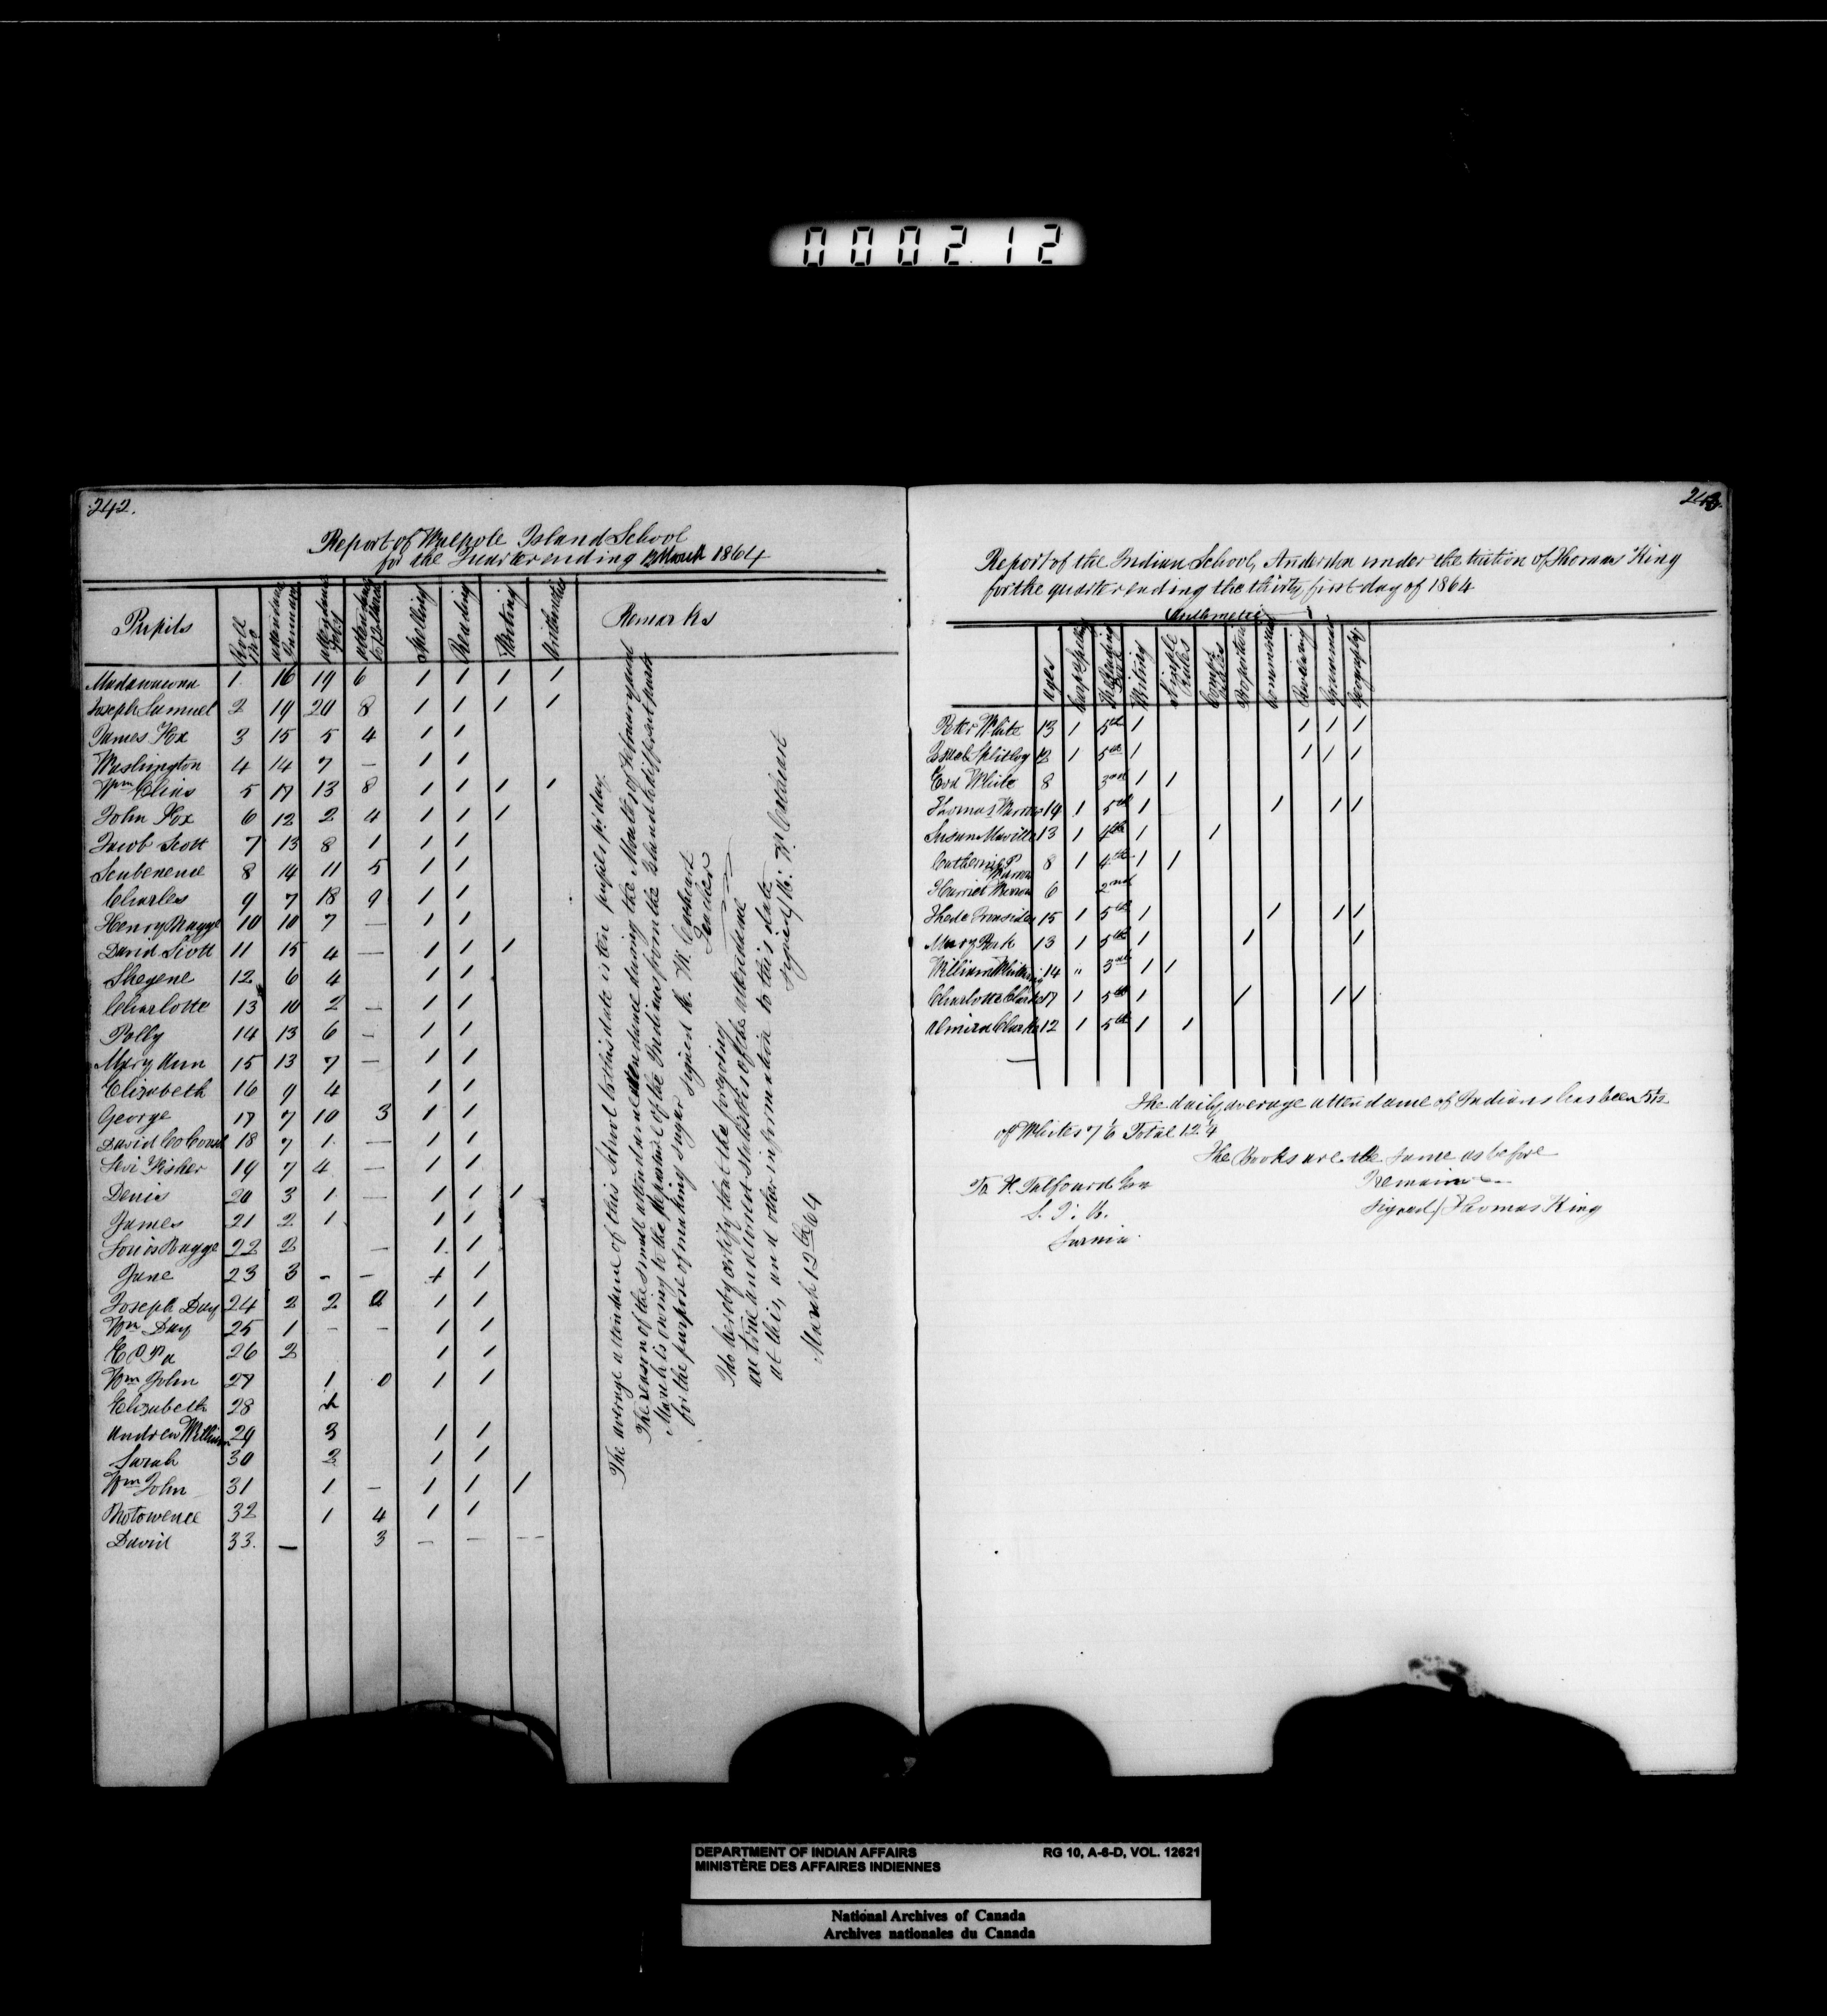 000212
242.
Report of Walpole Island School
for the Quarter ending 12 March 1864
Pupils Roll No Attendance January Attendance Feby Attendance March Spelling Reading Writing Arithmetic Remarks
Madawawona 1 16 19 6 1 1 1 1
Joseph Samuel 2 19 20 8 1 1 1 1
James Fox 3 15 5 4 1 1
Washington 4 14 7 — 1 1
Wm Elias 5 17 13 8 1 1 1 1
John Fox 6 12 2 4 1 1 1
Jacob Scott 7 13 8 1 1 1
8 14 11 5 1 1
Charles 9 7 18 9 1 1
Henry 10 10 7 — 1 1
David Scott 11 15 4 — 1 1 1
Shegene 12 6 4 1 1
Charlotte 13 10 2 — 1 1
Polly 14 13 6 — 1 1
Mary Ann 15 13 7 — 1 1
Elizabeth 16 9 4 1 1
George 17 7 10 3 1 1
David 18 7 1 — 1 1
Levi Fisher 19 7 4 — 1 1
Denis 20 3 1 — 1 1 1
James 21 2 1 1 1
Louis 22 2 — 1 1
Jane 23 3 - — 1 1
Joseph Day 24 2 2 2 1 1
Wm Day 25 1 - - 1 1
26 2 1 1
Wm John 27 1 0 1 1
Elizabeth 28
Andrew William 29 3 1 1
Sarah 30 2 1 1
Wm John 31 1 — 1 1 1
32 1 4 1 1
David 33. — 3 — — --
The average attendance of this School to this date is ten pupils pr. day.
The reason of the small attendance during the Months of February and
March is owing to the departure of the Indians from the Island to different parts
for the purpose of making sugar signed
Teacher
I do hereby certify that the foregoing
are true and correct statistics of the attendance
at this, and other information to this date
signed
March 12th 64
243.
Report of the Indian School, Anderdon under the tuition of Thomas King
for the quarter ending the thirty first day of 1864
Arithmetic
Ages Reading Writing Simple Rules Comp. Rules Proportion Grammar Geography
Peter White 13 1 5th 1 1 1 1
Splitlog 12 1 5th 1 1 1 1
White 8 3rd 1 1
Thomas Warrow 14 1 5th 1 1 1 1
Susan 13 1 4th 1 1
Catherine Warrow 8 1 4th 1 1
Harriet Warrow 6 2nd
15 1 5th 1 1 1 1
Mary 13 1 5th 1 1 1
William 14 " 3rd 1 1
Charlotte Clarke 17 1 5th 1 1 1 1
Almira Clarke 12 1 5th 1 1
—
The daily average attendance of Indians has been
of Whites 7 1/6 Total 12 1/4
The Books are the same as before
Remain
To F. Talfourd Esq
Signed/ Thomas King
S. I. A.
Sarnia
DEPARTMENT OF INDIAN AFFAIRS RG 10, A-6-D, VOL. 12621
MINISTÈRE DES AFFAIRES INDIENNES
National Archives of Canada
Archives nationales du Canada